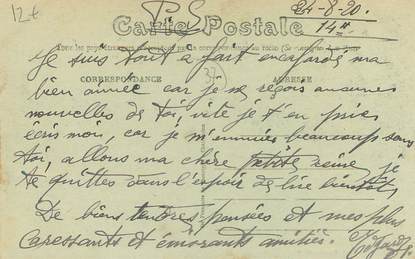 12€
P.S
24-8-20.
14H.
Carte Postale
CORRESPONDANCE
ADRESSE
Je suis tout a fait ma
bien aimée car je ne reçois aucunes
nouvelles de toi, vite je t'en prie
écris moi, car je m'ennuie beaucoup sans
toi, allons ma chère petite reine, je
te quittes dans l'espoir de lire bientôt,
De biens tendres pensées et mes plus
caressants et amitiés.